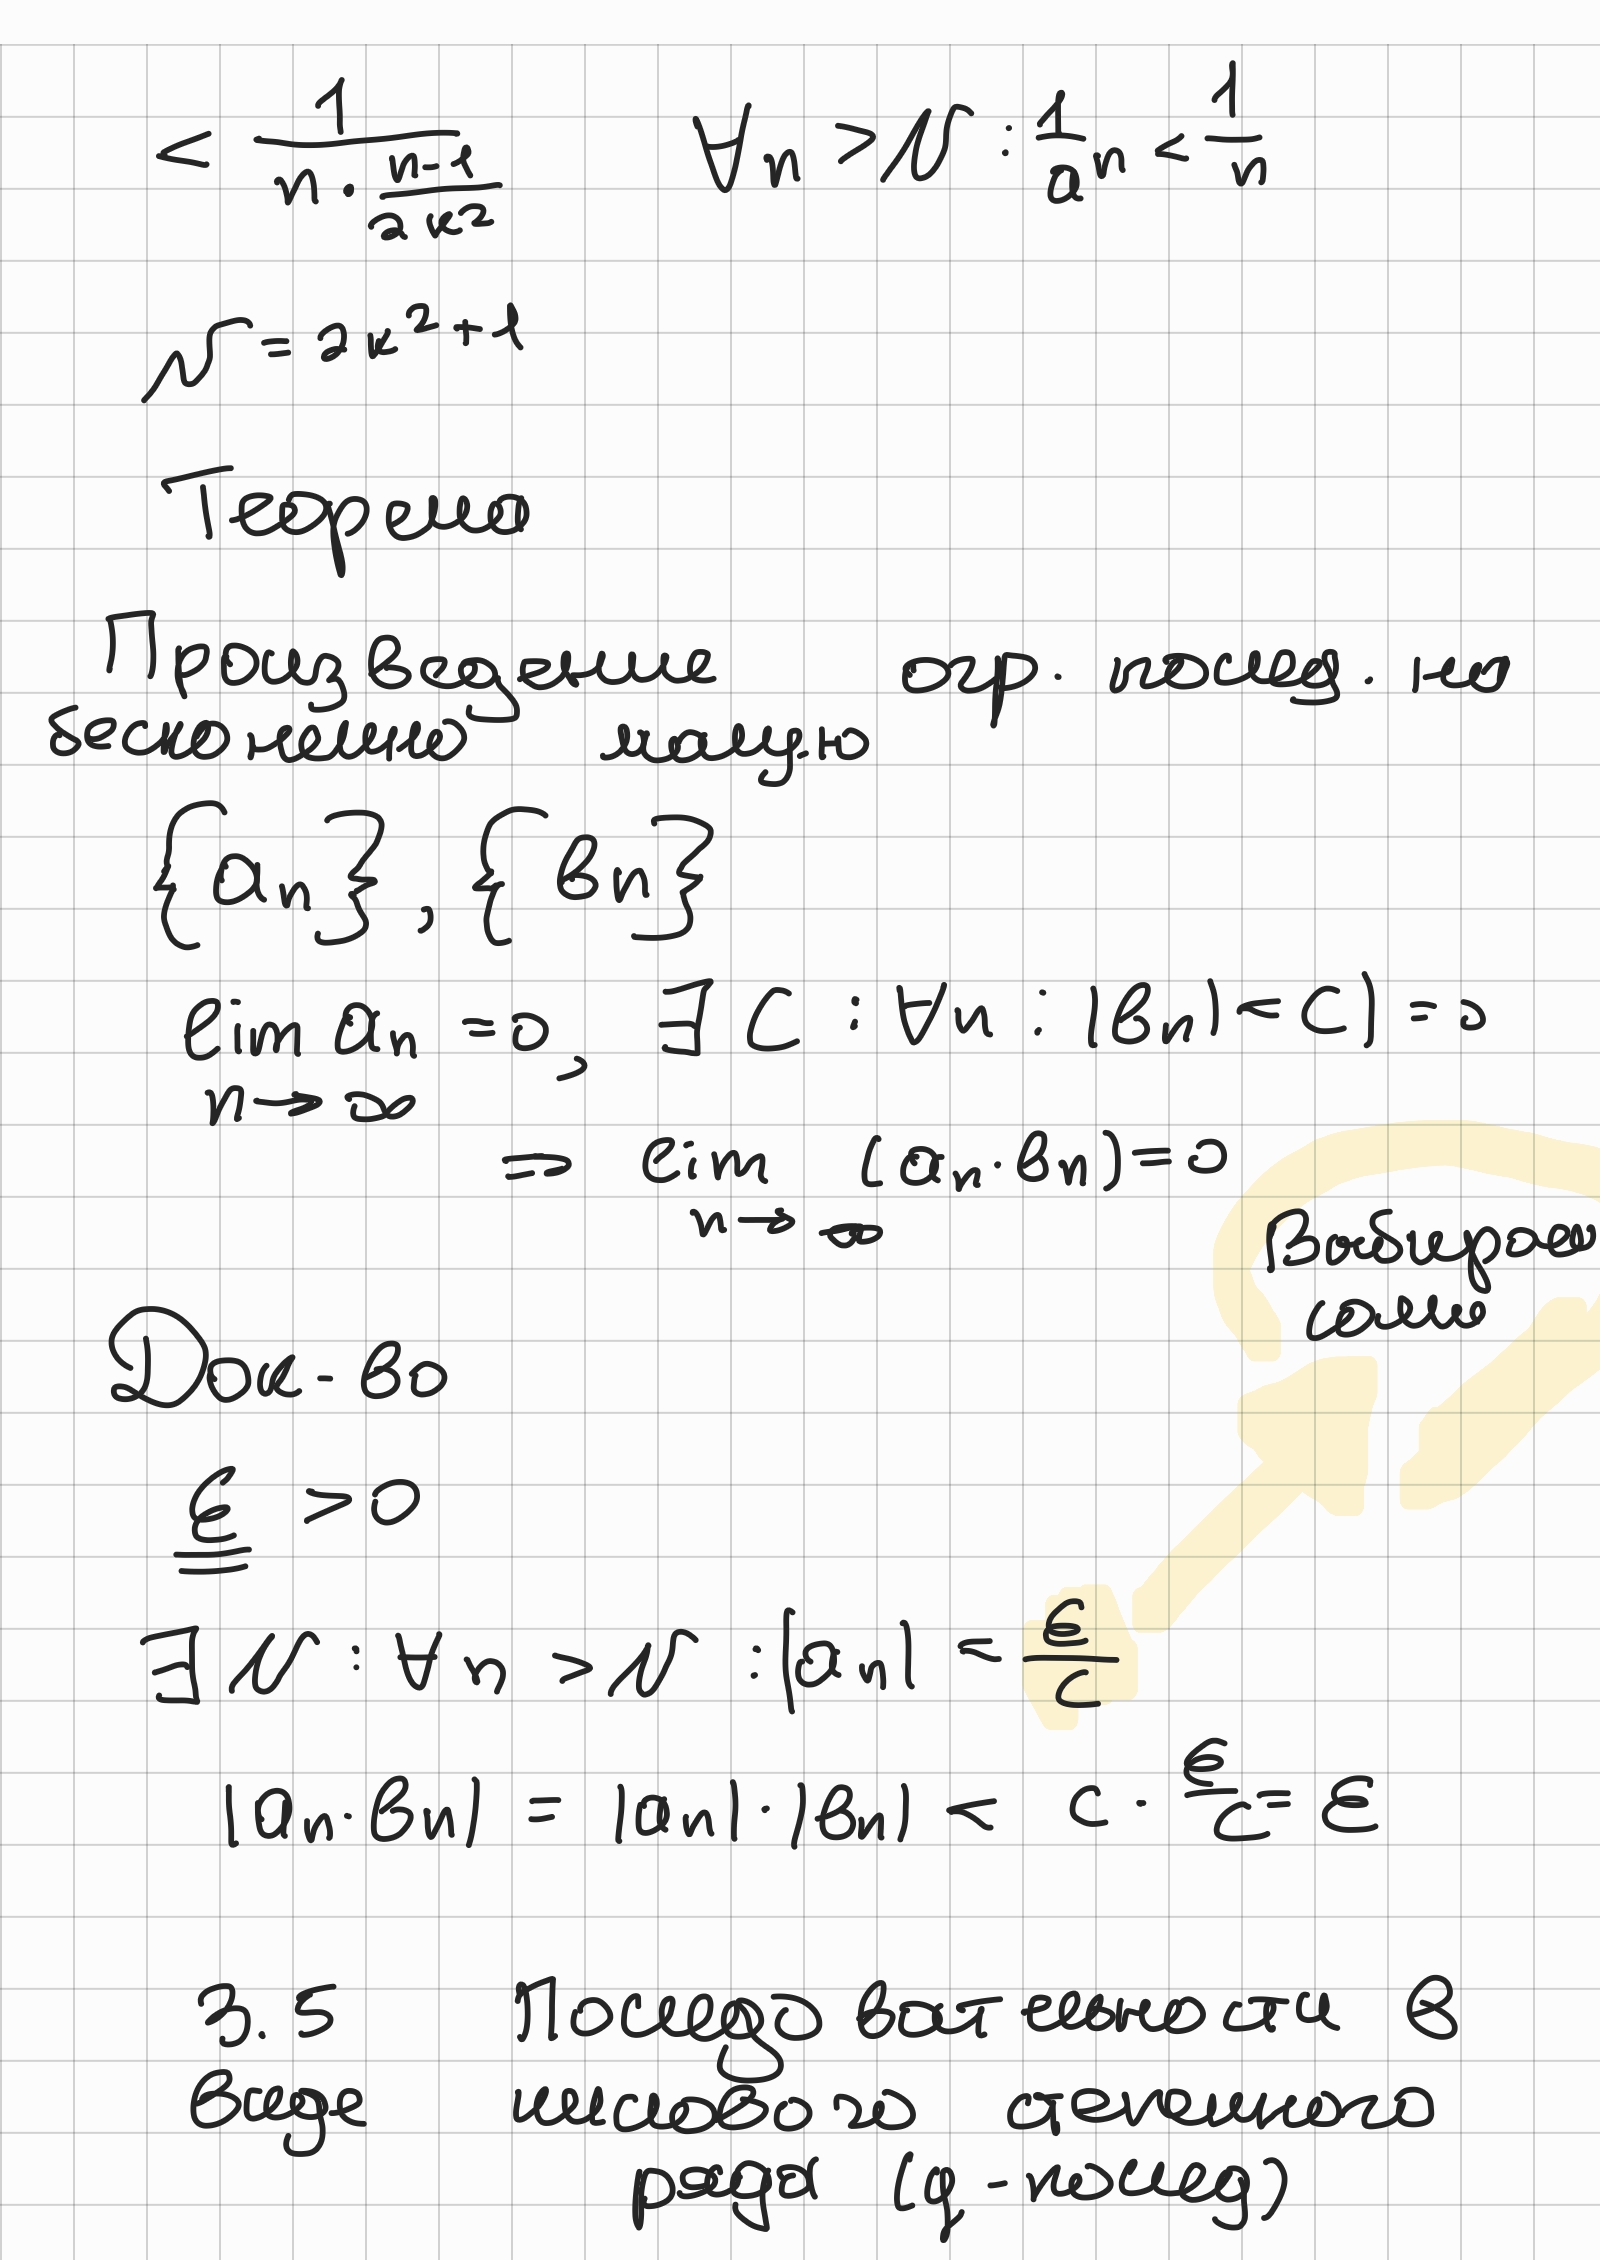 < 1/(n · (n-1)/(2k²))   ∀n > N : 1/a^n < 1/n
N = 2k² + 1
Теорема
Произведение огр. послед. на
бесконечно малую
{a_n}, {b_n}
lim a_n = 0, ∃ C : ∀n : |b_n| < C) = 0
n→∞
⇒ lim (a_n · b_n) = 0
n→∞
Выбираем
сами
Док-во
ε > 0
∃ N : ∀ n > N : |a_n| < ε/C
|a_n · b_n| = |a_n| · |b_n| < C · ε/C = ε
3.5 Последовательности в
виде числового степенного
ряда (q-послед)